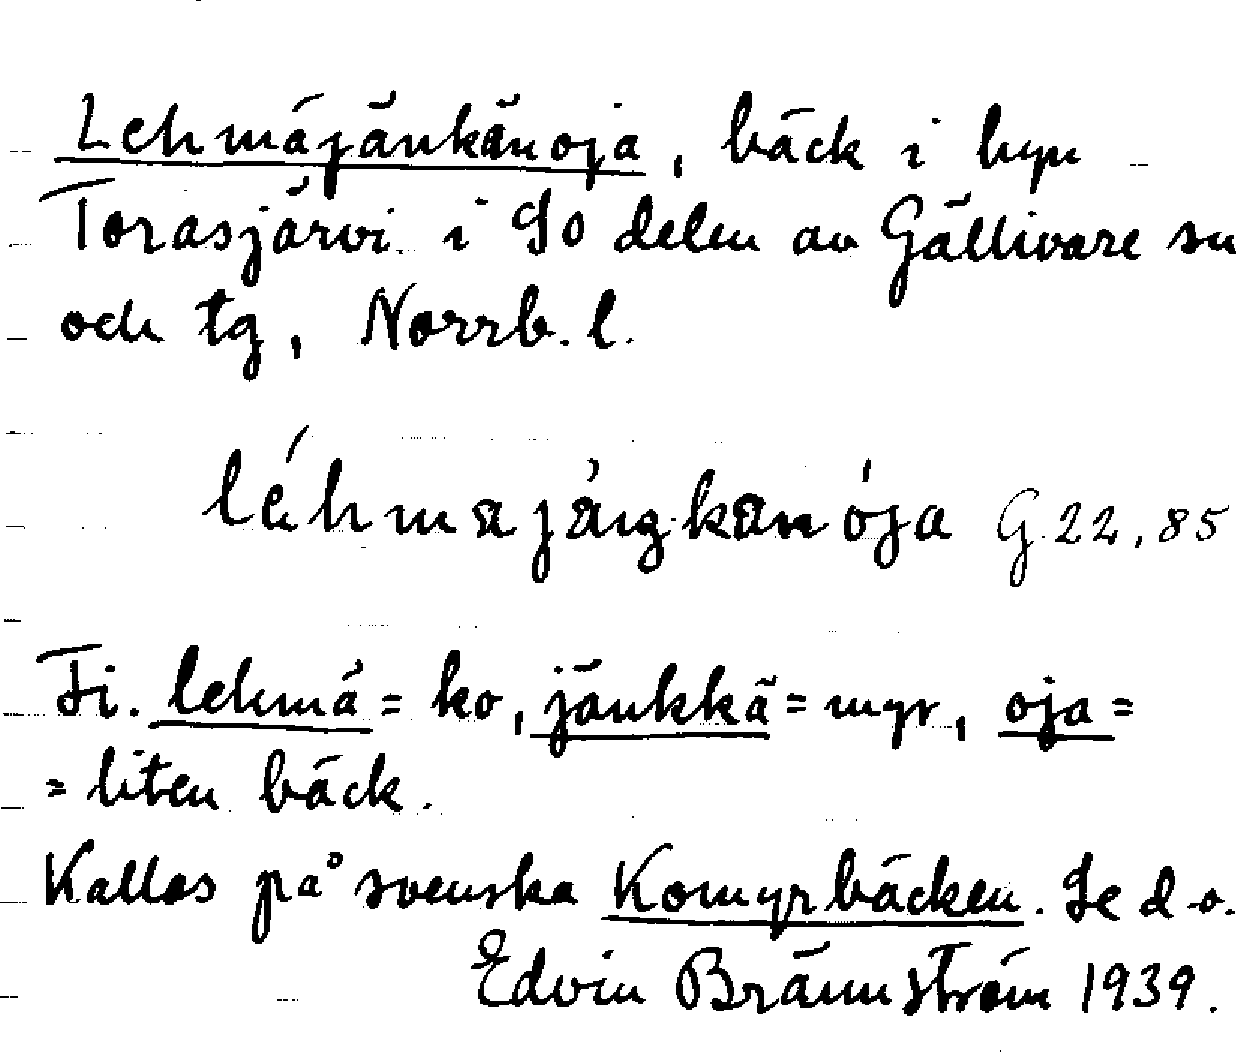 Lehmäjänkänoja, bäck i byn
Torasjärvi i SO delen av Gällivare sn
och tg, Norrb. l.
léhmajáŋkanója G 22,85
Fi. lehmä = ko, jänkkä = myr, oja =
= liten bäck.
Kallas på svenska Komyrbäcken. Se d.o.
Edvin Brännström 1939.